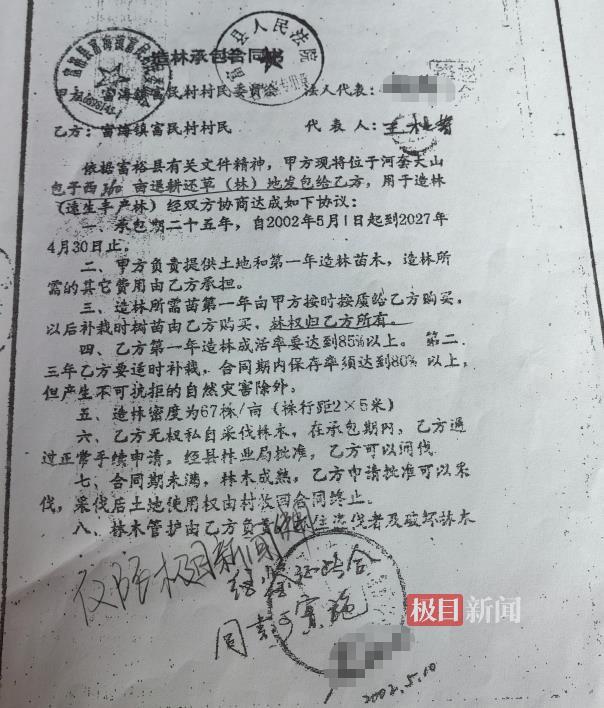 造林承包合同书
甲方：富海镇富民村村民委员会 法人代表：
乙方：富海镇富民村村民 代表人：
依据富裕县有关文件精神，甲方现将位于河套大山
包子西 亩退耕还草（林）地发包给乙方，用于造林
（速生丰产林）经双方协商达成如下协议：
一、承包期二十五年，自2002年5月1日起到2027年
4月30日止。
二、甲方负责提供土地和第一年造林苗木，造林所
需的其它费用由乙方承担。
三、造林所需苗第一年由甲方按时按质给乙方购买，
以后补栽时树苗由乙方购买，林权归乙方所有。
四、乙方第一年造林成活率要达到85%以上。第二、
三年乙方要适时补栽，合同期内保存率须达到80%以上，
但产生不可抗拒的自然灾害除外。
五、造林密度为67株/亩（株行距2×5米）
六、乙方无权私自采伐林木，在承包期内，乙方通
过正常手续申请，经县林业局批准，乙方可以间伐
七、合同期未满，林木成熟，乙方申请批准可以采
伐，采伐后土地使用权由村收回合同终止。
八、林木管护由乙方负责 盗伐者及破坏林木
仅限极目新闻
同意 实施
极目新闻
2002.5.10